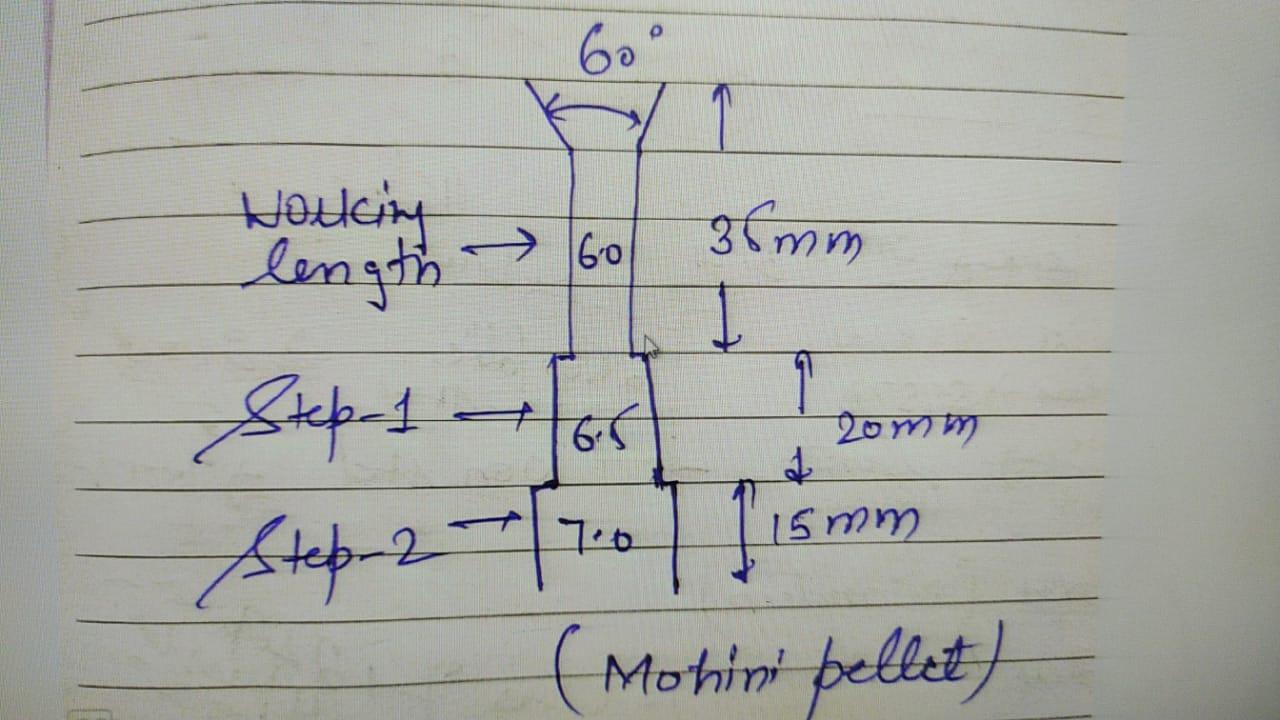 60°
Working
length → 6.0 35mm
Step-1 → 6.5 20mm
Step-2 → 7.0 15mm
(Mohini pellet)